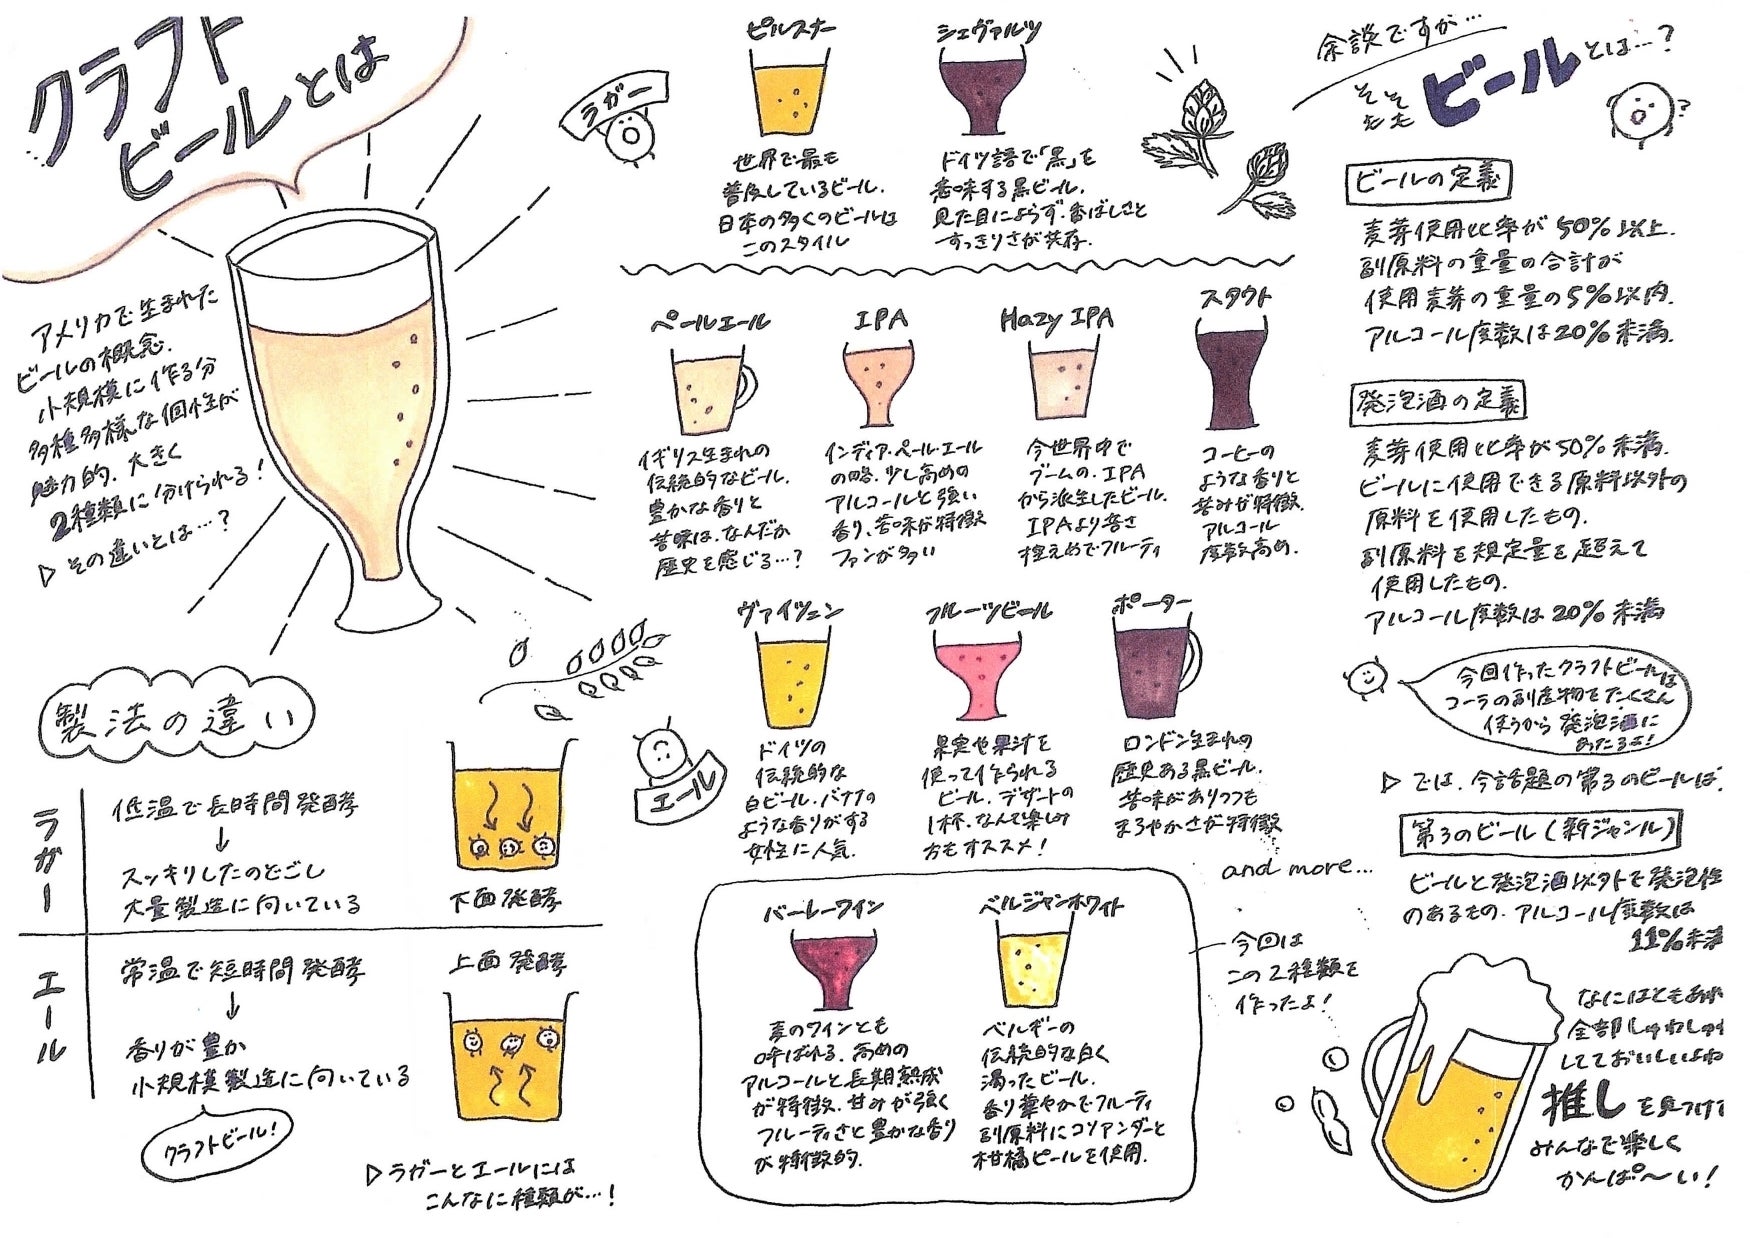 クラフト
ビールとは
アメリカで生まれた
ビールの概念.
小規模に作る分
多種多様な個性が
魅力的. 大きく
2種類に分けられる!
▷ その違いとは…?
製法の違い
ラガー
低温で長時間発酵
↓
スッキリしたのどごし
大量製造に向いている
下面発酵
エール
常温で短時間発酵
↓
香りが豊か
小規模製造に向いている
クラフトビール!
上面発酵
▷ ラガーとエールには
こんなに種類が…!
ラガー
ピルスナー
世界で最も
普及しているビール.
日本の多くのビールは
このスタイル
シュヴァルツ
ドイツ語で「黒」を
意味する黒ビール.
見た目によらず、香ばしさと
すっきりさが共存.
ペールエール
イギリス生まれの
伝統的なビール.
豊かな香りと
苦味は、なんだか
歴史を感じる…?
IPA
インディア・ペール・エール
の略. 少し高めの
アルコールと強い
香り、苦味が特徴
ファンが多い
Hazy IPA
今世界中で
ブームの、IPA
から派生したビール.
IPAより苦さ
控えめでフルーティ
スタウト
コーヒーの
ような香りと
苦みが特徴.
アルコール
度数高め.
エール
ヴァイツェン
ドイツの
伝統的な
白ビール. バナナの
ような香りがする
女性に人気.
フルーツビール
果実や果汁を
使って作られる
ビール. デザートの
1杯、なんて楽しみ
方もオススメ!
ポーター
ロンドン生まれの
歴史ある黒ビール.
苦味がありつつも
まろやかさが特徴
and more…
バーレーワイン
麦のワインとも
呼ばれる. 高めの
アルコールと長期熟成
が特徴. 甘みが強く
フルーティさと豊かな香り
が特徴的.
ベルジャンホワイト
ベルギーの
伝統的な白く
濁ったビール.
香り華やかでフルーティ
副原料にコリアンダーと
柑橘ピールを使用.
今回は
この2種類を
作ったよ!
余談ですが…
そもそも
ビールとは…?
ビールの定義
麦芽使用比率が50%以上.
副原料の重量の合計が
使用麦芽の重量の5%以内.
アルコール度数は20%未満.
発泡酒の定義
麦芽使用比率が50%未満.
ビールに使用できる原料以外の
原料を使用したもの.
副原料を規定量を超えて
使用したもの.
アルコール度数は20%未満
今回作ったクラフトビールは
コーラの副産物をたくさん
使うから発泡酒に
あたるよ!
▷ では、今話題の第3のビールは、
第3のビール(新ジャンル)
ビールと発泡酒以外で発泡性
のあるもの. アルコール度数は
11%未満
なにはともあれ
全部しゅわしゅわ
してておいしいよね
推しを見つけて
みんなで楽しく
かんぱ〜い!